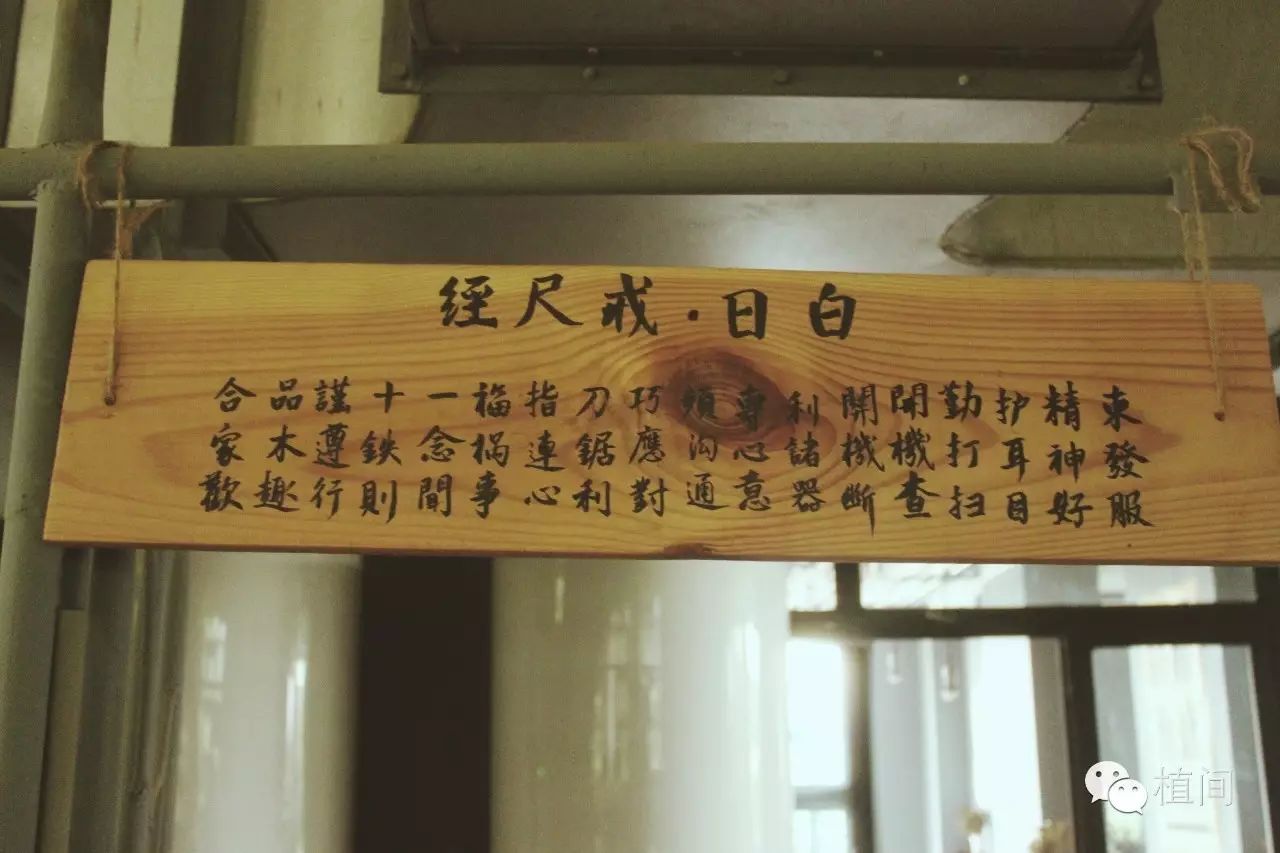 白日·戒尺經
束發服
精神好
护耳目
勤打扫
開機查
關機斷
利諸器
專心意
頻沟通
巧應對
刀鋸利
指連心
福祸事
一念間
十鉄則
謹遵行
品木趣
合家歡
植间